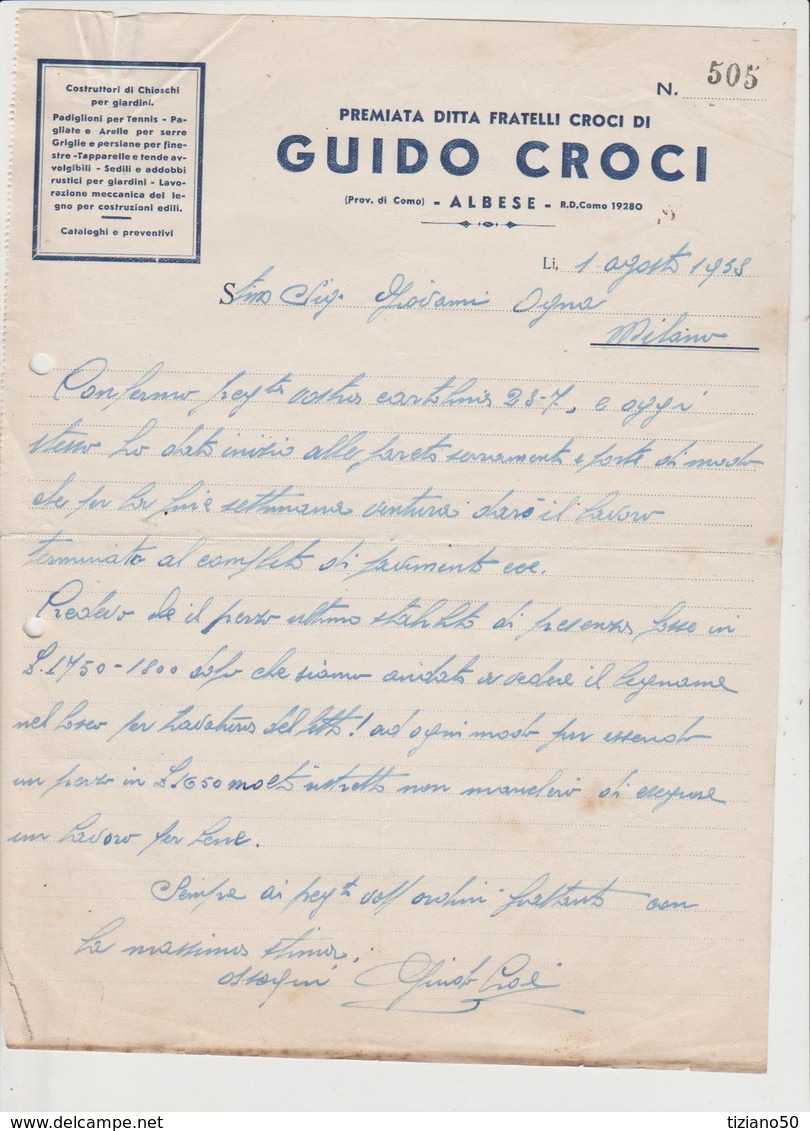 Costruttori di Chioschi
per giardini.
Padiglioni per Tennis - Pa-
gliate e Arelle per serre
Griglie e persiane per fine-
stre - Tapparelle e tende av-
volgibili - Sedili e addobbi
rustici per giardini - Lavo-
razione meccanica del le-
gno per costruzioni edili.
Cataloghi e preventivi
N. 505
PREMIATA DITTA FRATELLI CROCI DI
GUIDO CROCI
(Prov. di Como) - ALBESE - R.D. Como 19280
Li, 1 agosto 1938
Stim Sig. Giovanni Ogna
Milano
Confermo preg.ta vostra cartolina 28-7, e oggi
stesso ho dato inizio alle pareti serramenti e porte di modo
che per la fine settimana ventura darò il lavoro
terminato al completo di pavimento ecc.
Credevo che il prezzo ultimo stabilito di presenza fosse in
£. 1750-1800 dopo che siamo andati a vedere il legname
nel bosco per travatura del tetto! ad ogni modo pur essendo
un prezzo in £ 1650 molto ristretto non mancherò di eseguire
un lavoro per bene.
Sempre ai preg.ti vostri ordini frattanto con
la massima stima.
ossequi Guido Croci
tiziano50